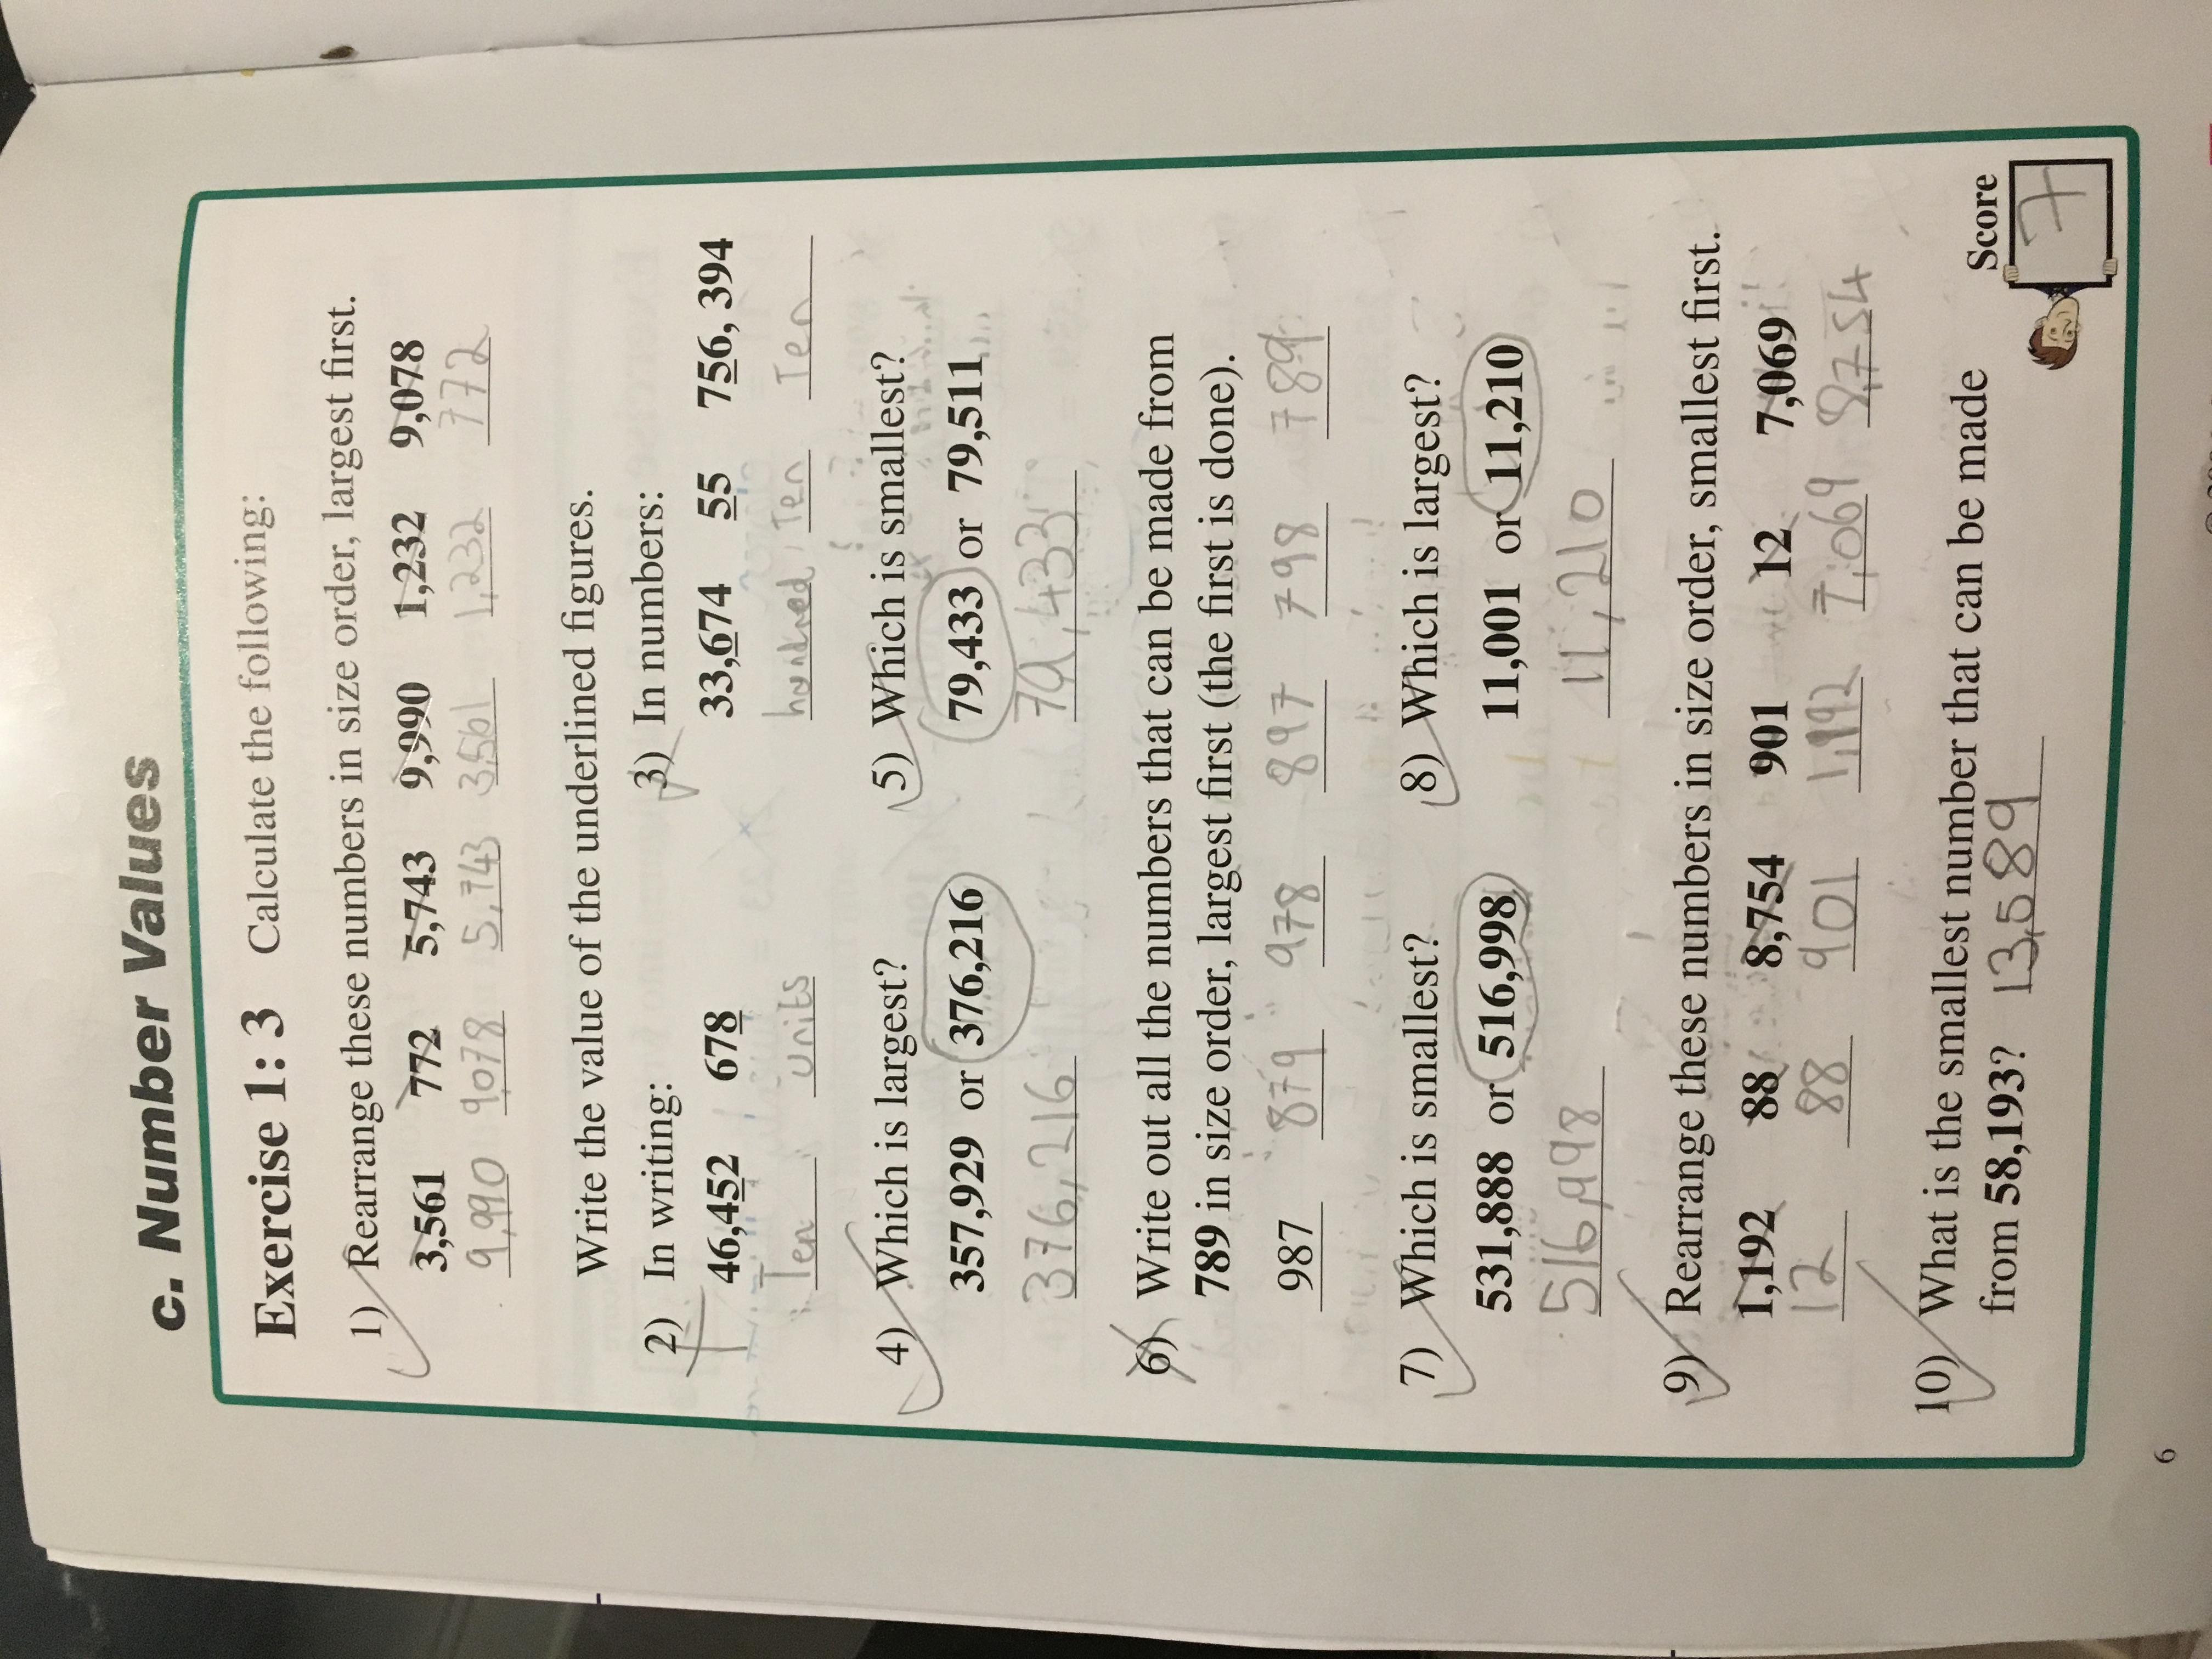 c. Number Values
Exercise 1: 3 Calculate the following:
1) Rearrange these numbers in size order, largest first.
3,561 772 5,743 9,990 1,232 9,078
9,990 9,078 5,743 3,561 1,232 772
Write the value of the underlined figures.
2) In writing: 3) In numbers:
46,452 678 33,674 55 756, 394
Ten units hundred Ten Ten
4) Which is largest? 5) Which is smallest?
357,929 or 376,216 79,433 or 79,511
376,216 79,433
6) Write out all the numbers that can be made from
789 in size order, largest first (the first is done).
987 879 978 897 798 789
7) Which is smallest? 8) Which is largest?
531,888 or 516,998 11,001 or 11,210
516,998 11,210
9) Rearrange these numbers in size order, smallest first.
1,192 88 8,754 901 12 7,069
12 88 901 1,192 7,069 8,754
10) What is the smallest number that can be made
from 58,193? 13,589
Score
7
6